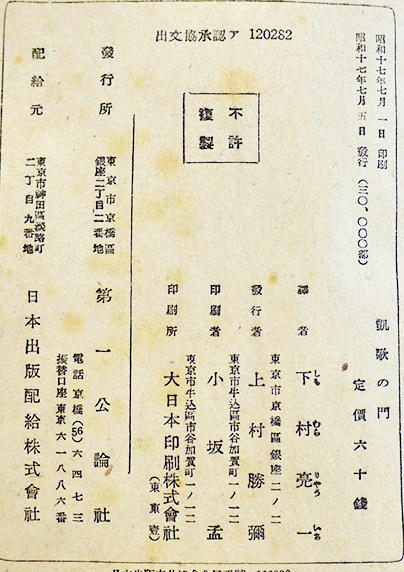 出文協承認ア 120282
昭和十七年七月一日印刷
昭和十七年七月五日發行（三〇、〇〇〇部）
凱歌の門
定價六十錢
譯者 下村亮一
しも むら りやう いち
東京市京橋區銀座二ノ二
發行者 上村勝彌
東京市牛込區市谷加賀町一ノ一二
印刷者 小坂孟
東京市牛込區市谷加賀町一ノ一二
印刷所 大日本印刷株式會社
（東東壹）
不許
複製
發行所
東京市京橋區
銀座二丁目二番地
第一公論社
電話京橋(56)六四七三
振替口座東京六一八八六番
配給元
東京市神田區淡路町
二丁目九番地
日本出版配給株式會社